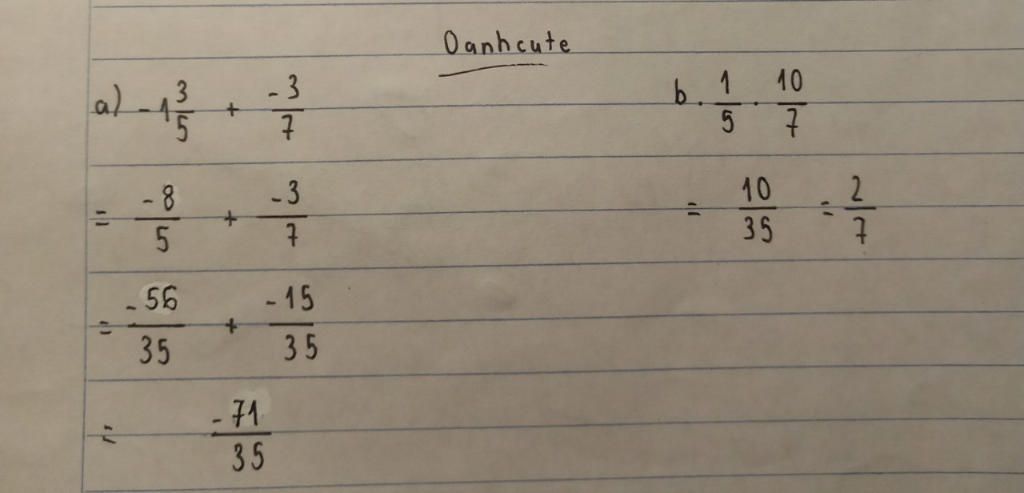 Oanhcute
a) -1 3/5 + -3/7
= -8/5 + -3/7
= -56/35 + -15/35
= -71/35
b. 1/5 . 10/7
= 10/35 = 2/7